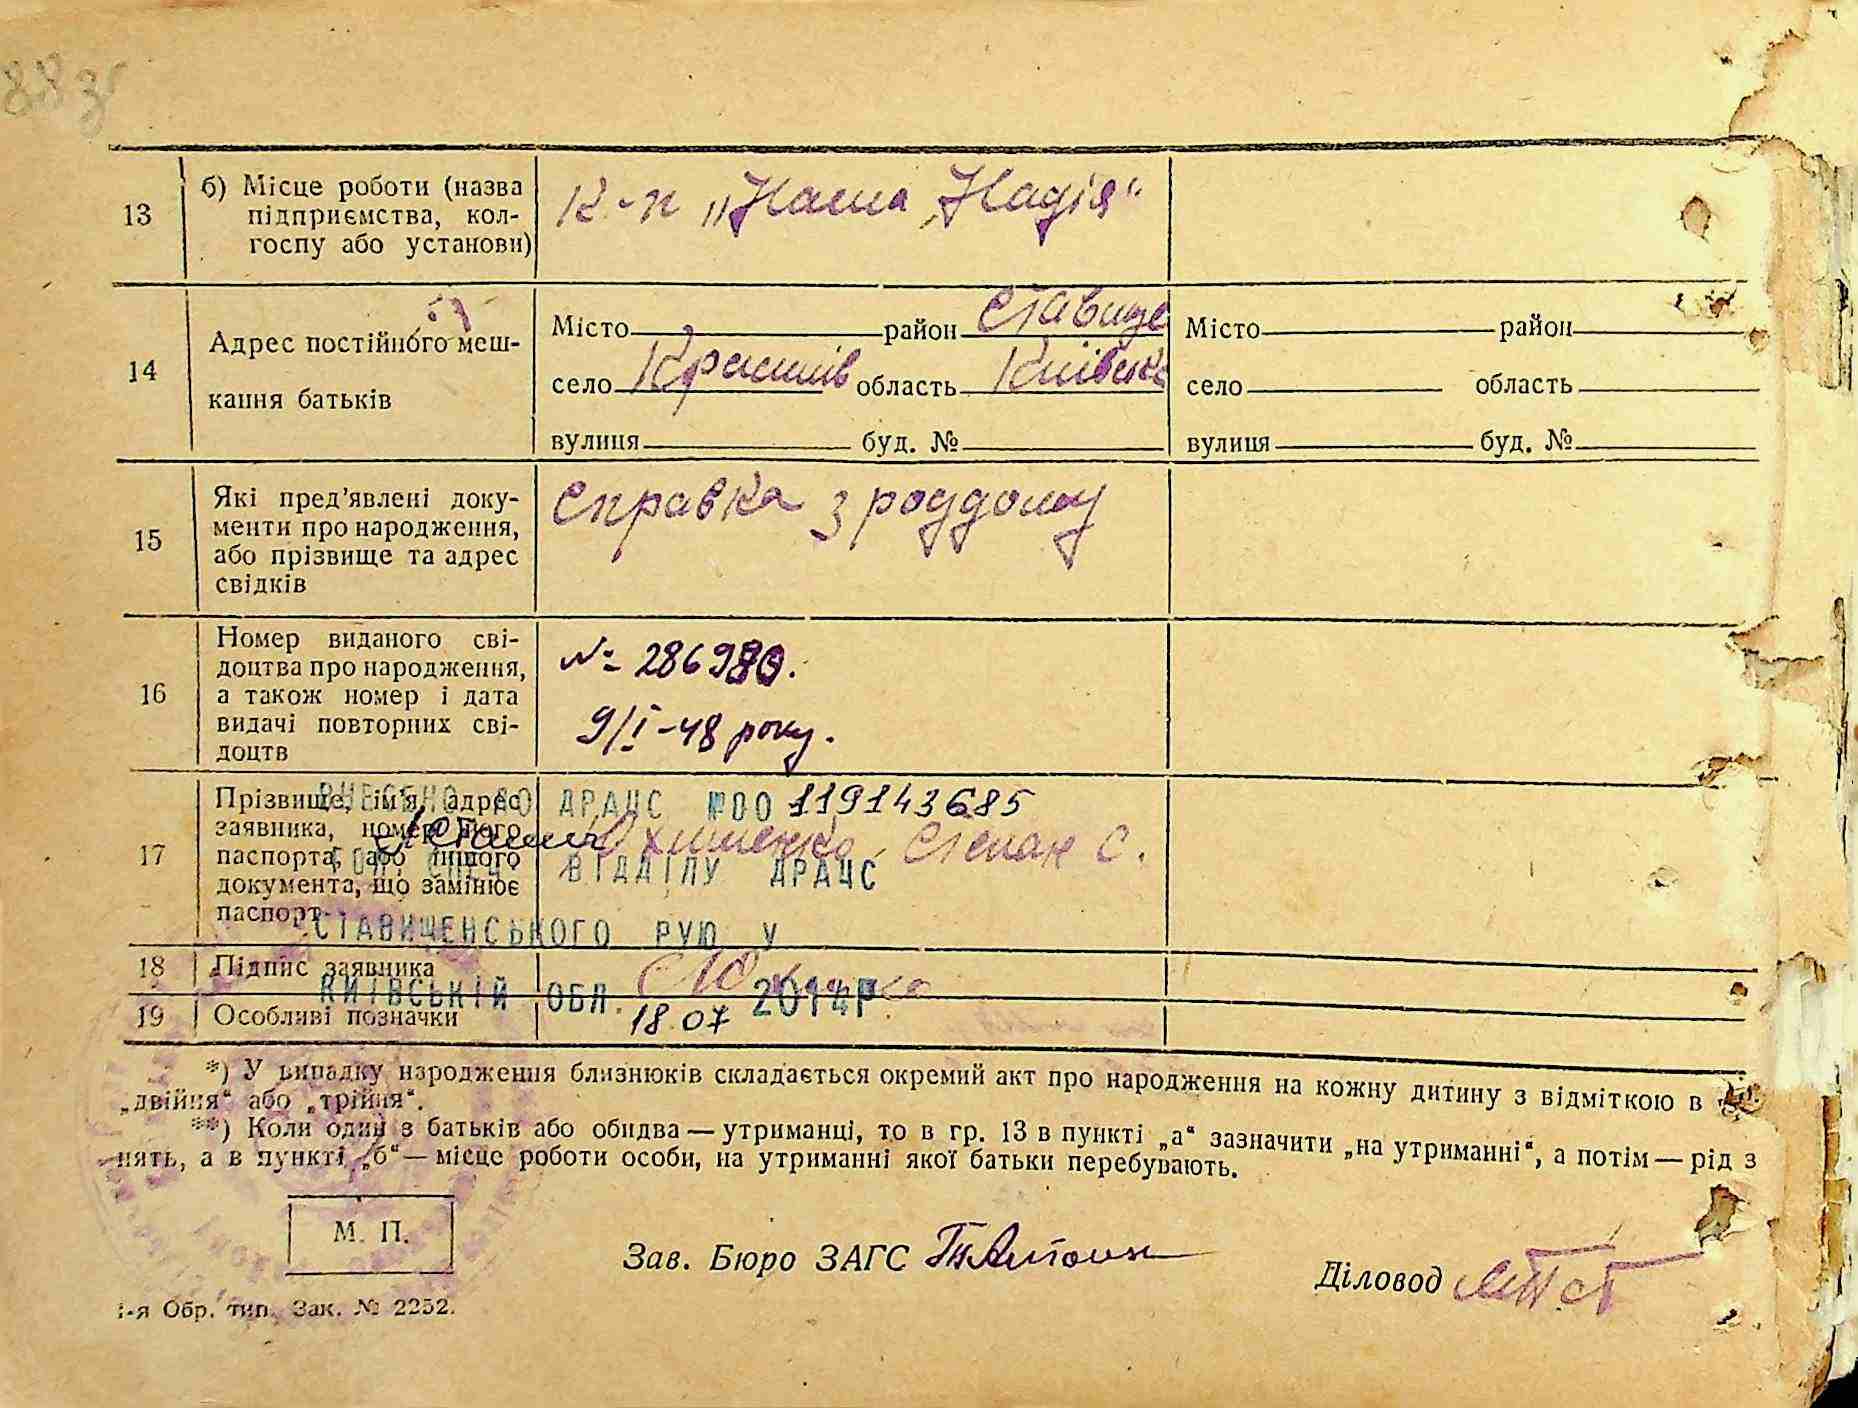 13
б) Місце роботи (назва
підприємства, кол-
госпу або установи)
К-п „Наша Надія“
14
Адрес постійного меш-
кання батьків
Місто район Ставище
село область Київська
вулиця буд. №
Місто район
село область
вулиця буд. №
15
Які пред’явлені доку-
менти про народження,
або прізвище та адрес
свідків
Справка з роддому
16
Номер виданого сві-
доцтва про народження,
а також номер і дата
видачі повторних сві-
доцтв
№ 286980.
9/I-48 року.
17
Прізвище, ім’я, адрес
заявника, номер його
паспорта, або іншого
документа, що замінює
паспорт
Охименко Степан С.
ВНЕСЕНО ДО ДРАЦС №00119143685
ВІДДІЛУ ДРАЦС
СТАВИЩЕНСЬКОГО РУЮ У
КИЇВСЬКІЙ ОБЛ. 18.07 2014Р
18
Підпис заявника
19
Особливі позначки
*) У випадку народження близнюків складається окремий акт про народження на кожну дитину з відміткою в
„двійня“ або „трійня“.
**) Коли один з батьків або обидва — утриманці, то в гр. 13 в пункті „а“ зазначити „на утриманні“, а потім — рід з
нять, а в пункті „б“ — місце роботи особи, на утриманні якої батьки перебувають.
М. П.
Зав. Бюро ЗАГС
Діловод
1-я Обр. тип. Зак. № 2252.